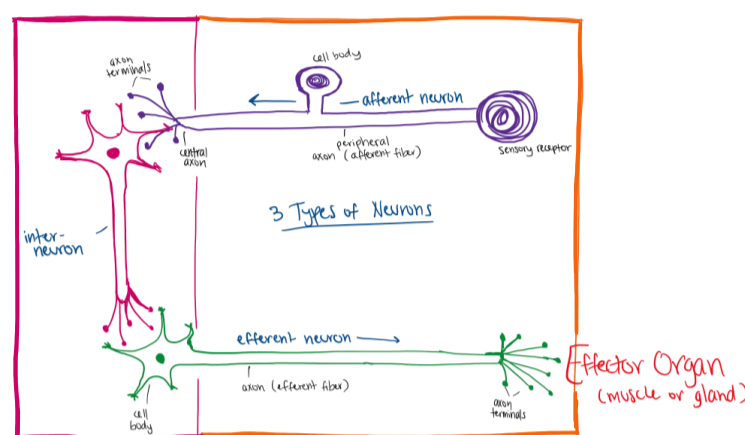 axon
terminals
cell body
afferent neuron
central
axon
peripheral
axon (afferent fiber)
sensory receptor
3 Types of Neurons
inter-
neuron
efferent neuron
axon (efferent fiber)
cell
body
axon
terminals
Effector Organ
(muscle or gland)